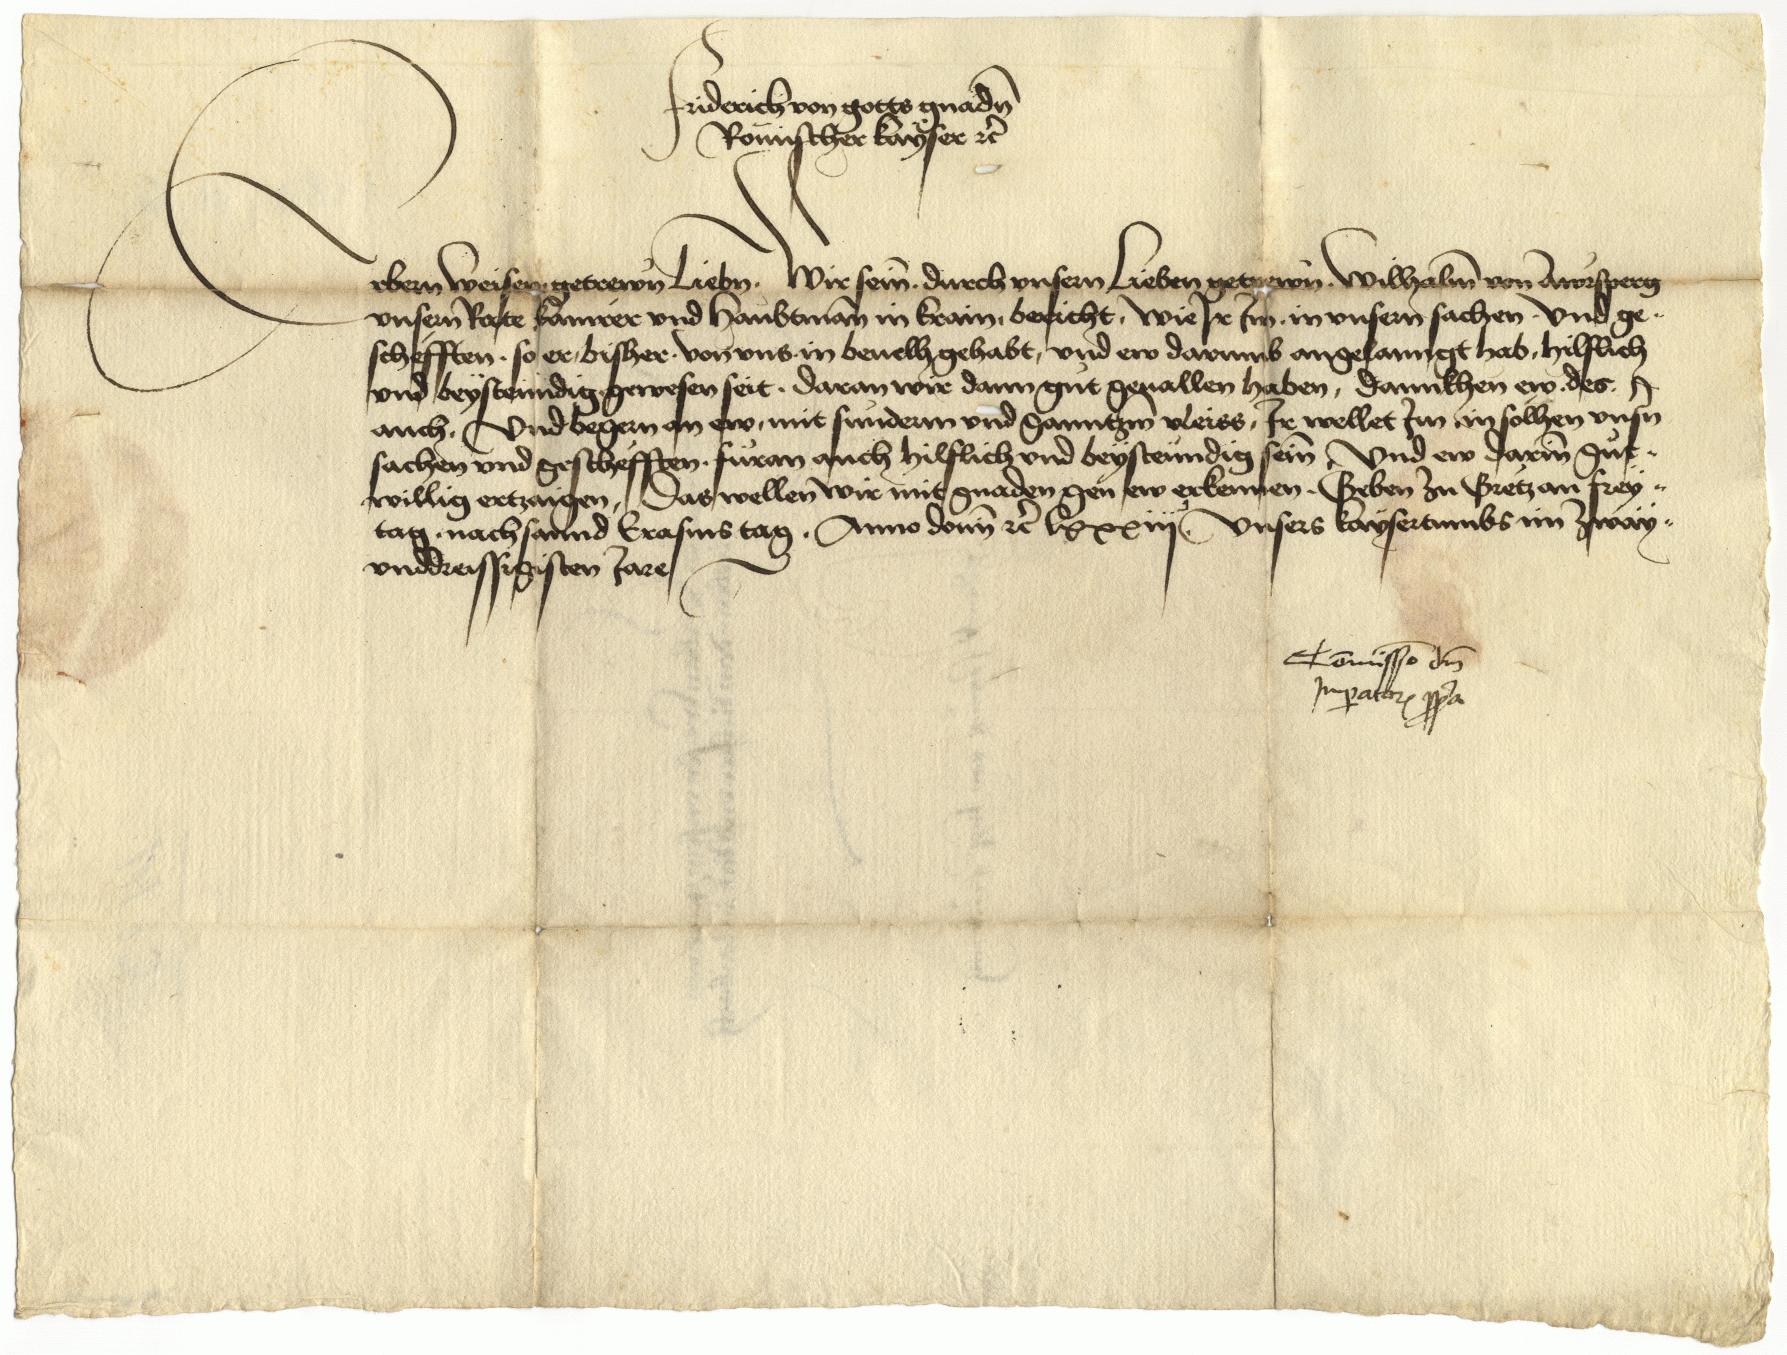 Friderich von gotts gnadn̄
Römischer kayser ꝛc̄
Erbern weisen getrewn Liebn. Wir sein. durch vnsern Lieben getrewn. Wilhalm̄ von Awrsperg
vnsern Rate Kamrer vnd Haubtman in Krain, bericht, wie Ir Im. in vnsern sachen. Vnd ge-
schefften. so er. bisher. von vns. in beuelh gehabt, vnd ew darumb angelanngt hab, hilflich
vnd beÿstenndig. gewesen seit. daran wir dann gut geuallen haben, dannkhen ew. des. Ir
auch, Vnd begern an ew, mit sunderm vnd ganntzm̄ vleiss, Ir wellet Im in solhen vnsn̄
sachen vnd geschefften. furan auch hilflich vnd beÿstenndig sein, Vnd ew darin̄ gut-
willig ertzaigen, Das wellen wir mit gnaden gen ew erkennen. Geben zu Gretz an freÿ-
tag. nach sannd Erasms tag. Anno domī ꝛc̄ lxxxiijº. Vnsers kaysertumbs im zwaÿ-
vnddreissigisten Jare
Com̄issio dn̄i
Imperatoris ꝓpa